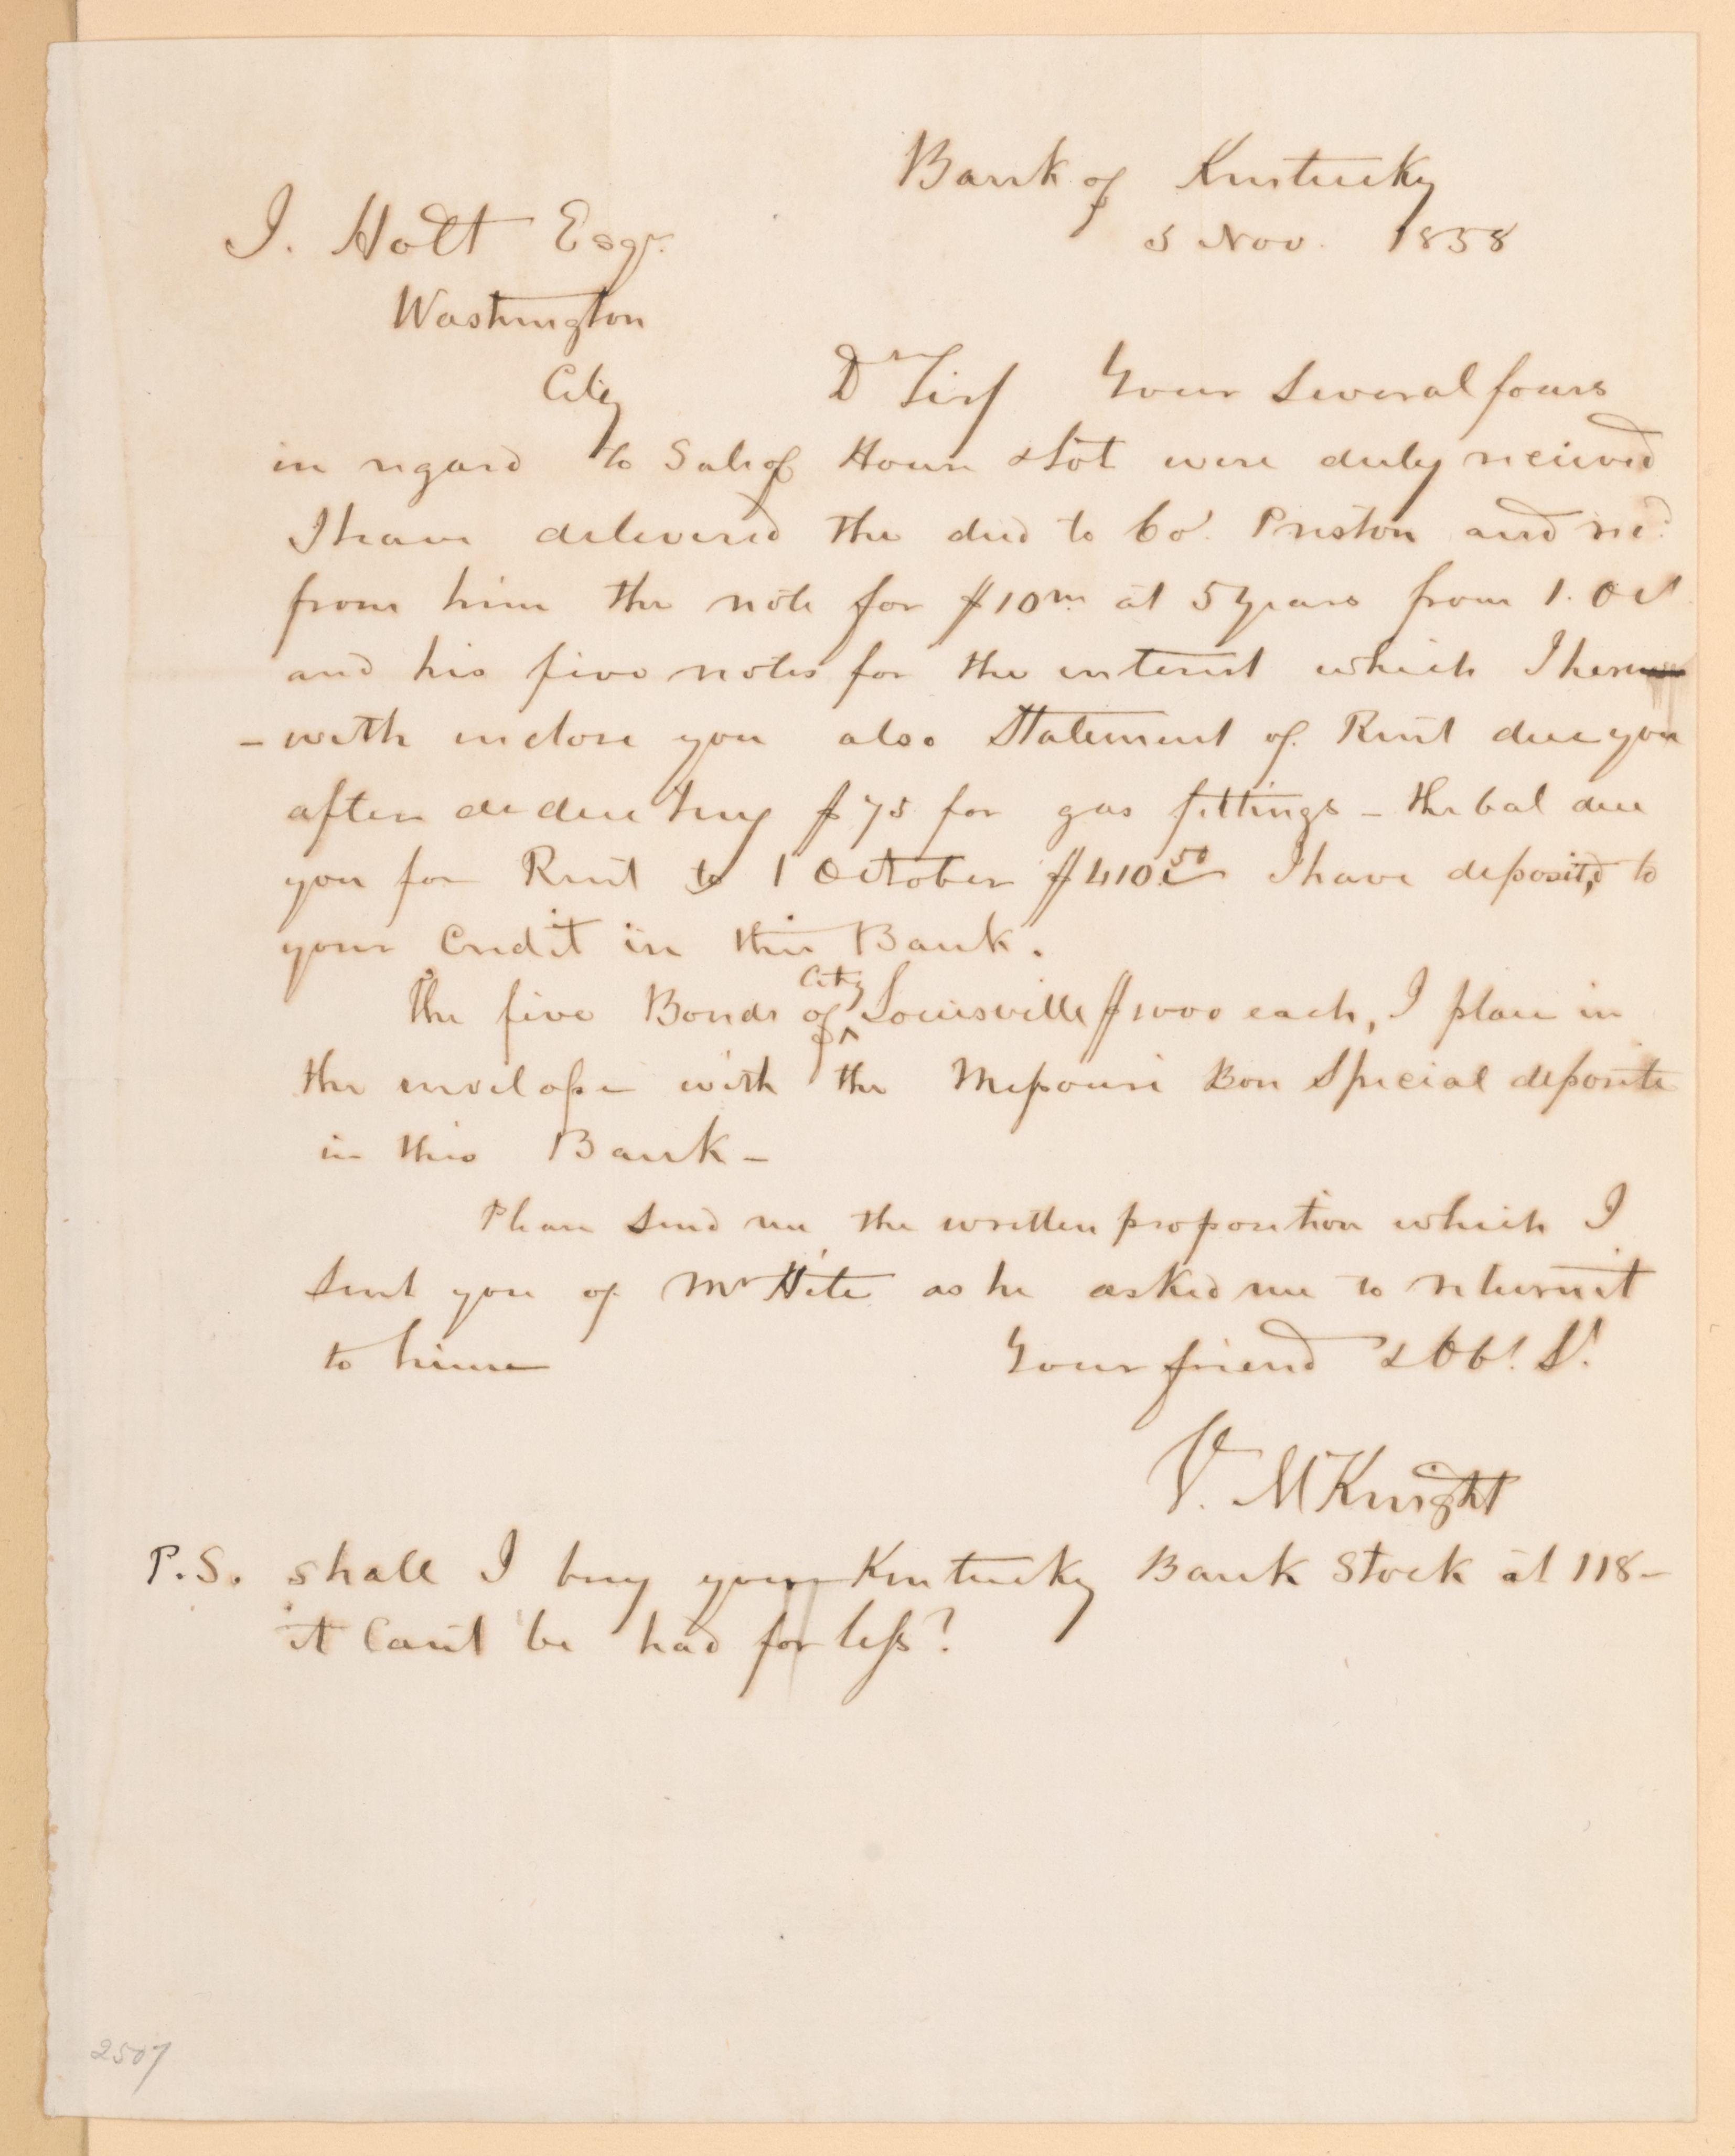 Bank of Kentucky
5 Nov. 1858
J. Holt Esqr.
Washington
City Dr Sir Your several favors
in regard to Sale of House & Lot were duly recieved
I have delivered the deed to Co'. Preston and recd.
from him the note for $10m at 5 years from 1. Oct
and his five notes for the interest which I here
- with inclose you also Statement of Rent due you
after deducting $75 for gas fittings - the bal due
you for Rent to 1 October $410.50 I have deposited to
your Credit in this Bank.
The five Bonds of City Louisville $1000 each, I place in
the envelope with the Missouri Bon Special deposite
in this Bank -
Please send me the written proposition which I
sent you of Mr Hite as he asked me to return it
to him Your friend & Obt. St.
V. McKnight
P.S. shall I buy your Kentucky Bank Stock at 118 -
it Can't be had for less?
2507